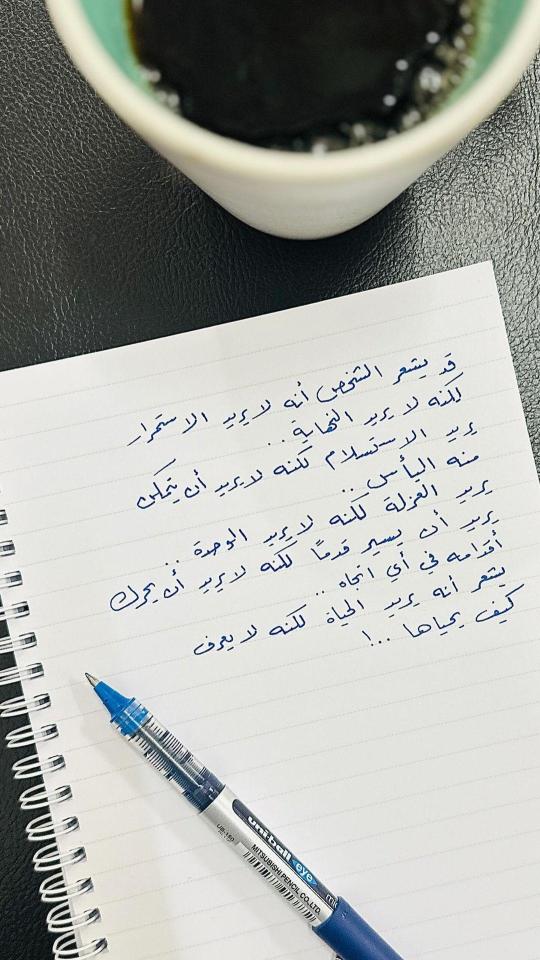 قد يشعر الشخص أنه لا يريد الاستمرار
لكنه لا يريد النهاية ..
يريد الاستسلام لكنه لا يريد أن يتمكن
منه اليأس ..
يريد العزلة لكنه لا يريد الوحدة ..
يريد أن يسير قدمًا لكنه لا يريد أن يحرك
أقدامه في أي اتجاه ..
يشعر أنه يريد الحياة لكنه لا يعرف
كيف يحياها ..!
uni-ball eye
UB-150
MITSUBISHI PENCIL CO.LTD.